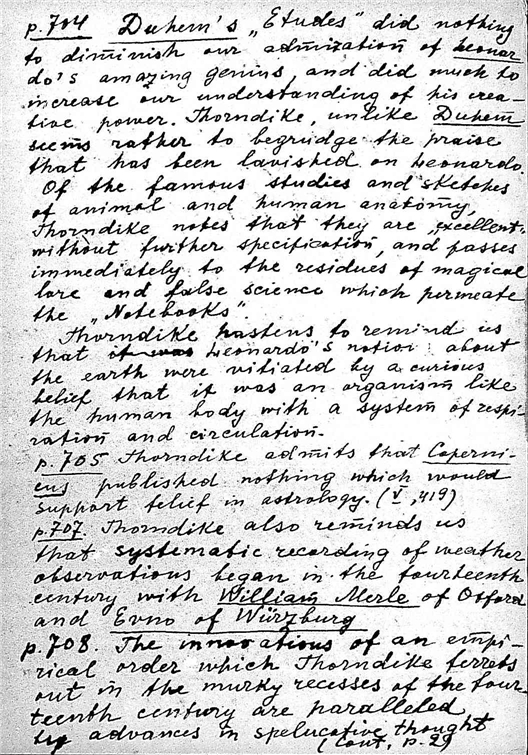 p.704 Duhem's „Etudes" did nothing
to diminish our admiration of Leonar
do's amazing genius, and did much to
increase our understanding of his crea-
tive power. Thorndike, unlike Duhem
seems rather to begrudge the praise
that has been lavished on Leonardo.
Of the famous studies and sketches
of animal and human anatomy,
Thorndike notes that they are „excellent"
without further specification, and passes
immediately to the residues of magical
lore and false science which permeate
the „Notebooks".
Thorndike hastens to remind us
that it was Leonardo's notion about
the earth were vitiated by a curious
belief that it was an organism like
the human body with a system of respi-
ration and circulation.
p.705 Thorndike admits that Coperni-
cus published nothing which would
support belief in astrology. (V, 419)
p.707 Thorndike also reminds us
that systematic recording of weather
observations began in the fourteenth
century with William Merle of Oxford
and Evno of Würzburg
p.708. The innovations of an empi-
rical order which Thorndike ferrets
out in the murky recesses of the four
teenth century are paralleled
by advances in spelucative thought
(cont. p. 9)